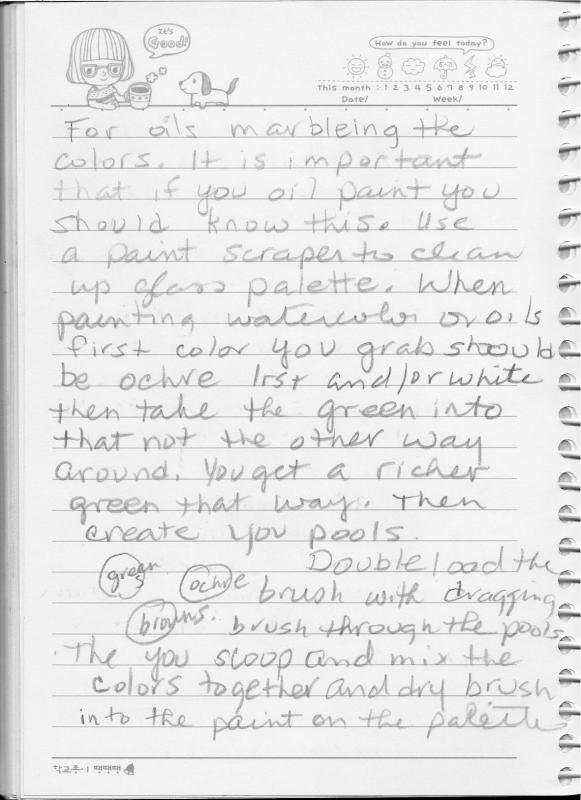 It's Good!
How do you feel today?
This month : 1 2 3 4 5 6 7 8 9 10 11 12
Date/ Week/
For oils marbleing the
colors. It is important
that if you oil paint you
should know this. Use
a paint scraper to clean
up glass palette. When
painting watercolor or oils
first color you grab should
be ochre 1rst and/or white
then take the green into
that not the other way
around. You get a richer
green that way. Then
create you pools.
Double load the
greens ochre brush with dragging
browns.. brush through the pools
The you scoop and mix the
colors together and dry brush
into the paint on the palette
학교종·1 땡땡땡